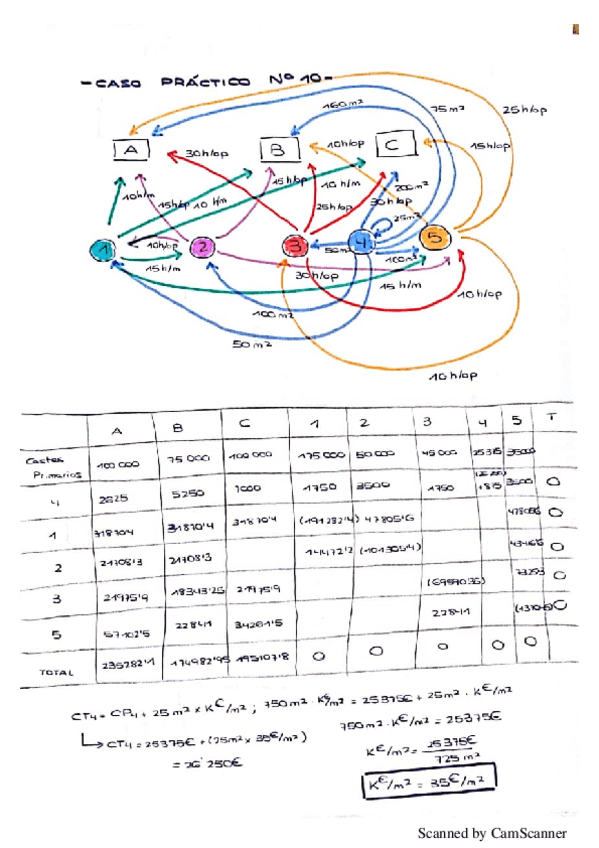 -CASO PRÁCTICO Nº 10-
160m²
75m²
25h/op
A
B
C
30h/op
10h/op
15h/op
10h/m
15h/op
10 h/m
15h/op
10 h/m
25h/op
30h/op
200m²
25m²
1
2
3
4
5
10h/op
15h/m
50m²
100m²
30h/op
15 h/m
10h/op
100m²
50m²
10h/op
A B C 1 2 3 4 5 T
Costes Primarios 100 000 75 000 100 000 175 000 50 000 45 000 25375
4 2625 5250 7000 1750 3500 1750 +875 3500 0
1 31870'4 31870'4 31870'4 (191282'4) 47805'6 0
2 21708'3 21708'3 14472'2 0
3 21975'9 18343'25 21975'9 0
5 57102'5 22841 34261'5 22841
TOTAL 235282'1 174982'95 195107'8 0 0 0 0 0
CT4 = CP4 + 25 m² x K€/m² ; 750m² · K€/m² = 25375€ + 25m² · K€/m²
↳ CT4 = 25375€ + (25m² x 35€/m²)
750m² · K€/m² = 25375€
= 26 250€
K€/m² = 25375€
725 m²
K€/m² = 35€/m²
Scanned by CamScanner